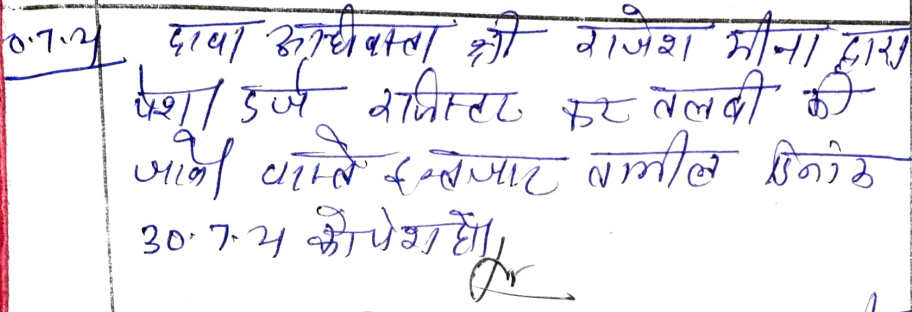 0.7.21 दावा अधिवक्ता श्री राजेश मीना द्वारा
पेश। दर्ज रजिस्टर कर तलबी की
जावे। वास्ते इन्तजार तामील दिनांक
30.7.21 को पेश हो।